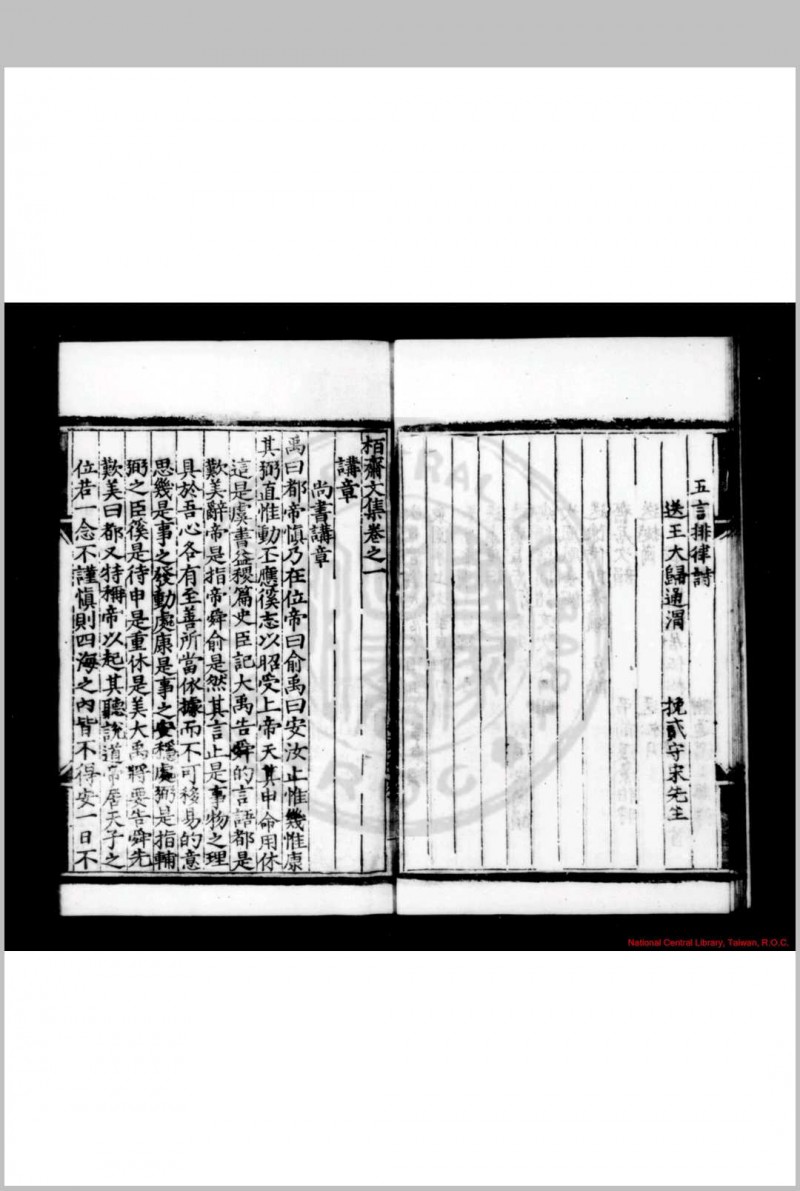 五言排律詩
送王大歸通渭
挽貳守宋先生
栢齋文集卷之一
講章
尚書講章
禹曰都帝慎乃在位帝曰俞禹曰安汝止惟幾惟康
其弼直惟動丕應徯志以昭受上帝天其申命用休
這是虞書益稷篇史臣記大禹告舜的言語都是
歎美辭帝是指帝舜俞是然其言止是事物之理
具於吾心各有至善所當依據而不可移易的意
思幾是事之發動處康是事之安穩處弼是指輔
弼之臣徯是待申是重休是美大禹將要告舜先
歎美曰都又特稱帝以起其聽說道帝居天子之
位若一念不謹慎則四海之內皆不得安一日不
National Central Library, Taiwan, R.O.C.